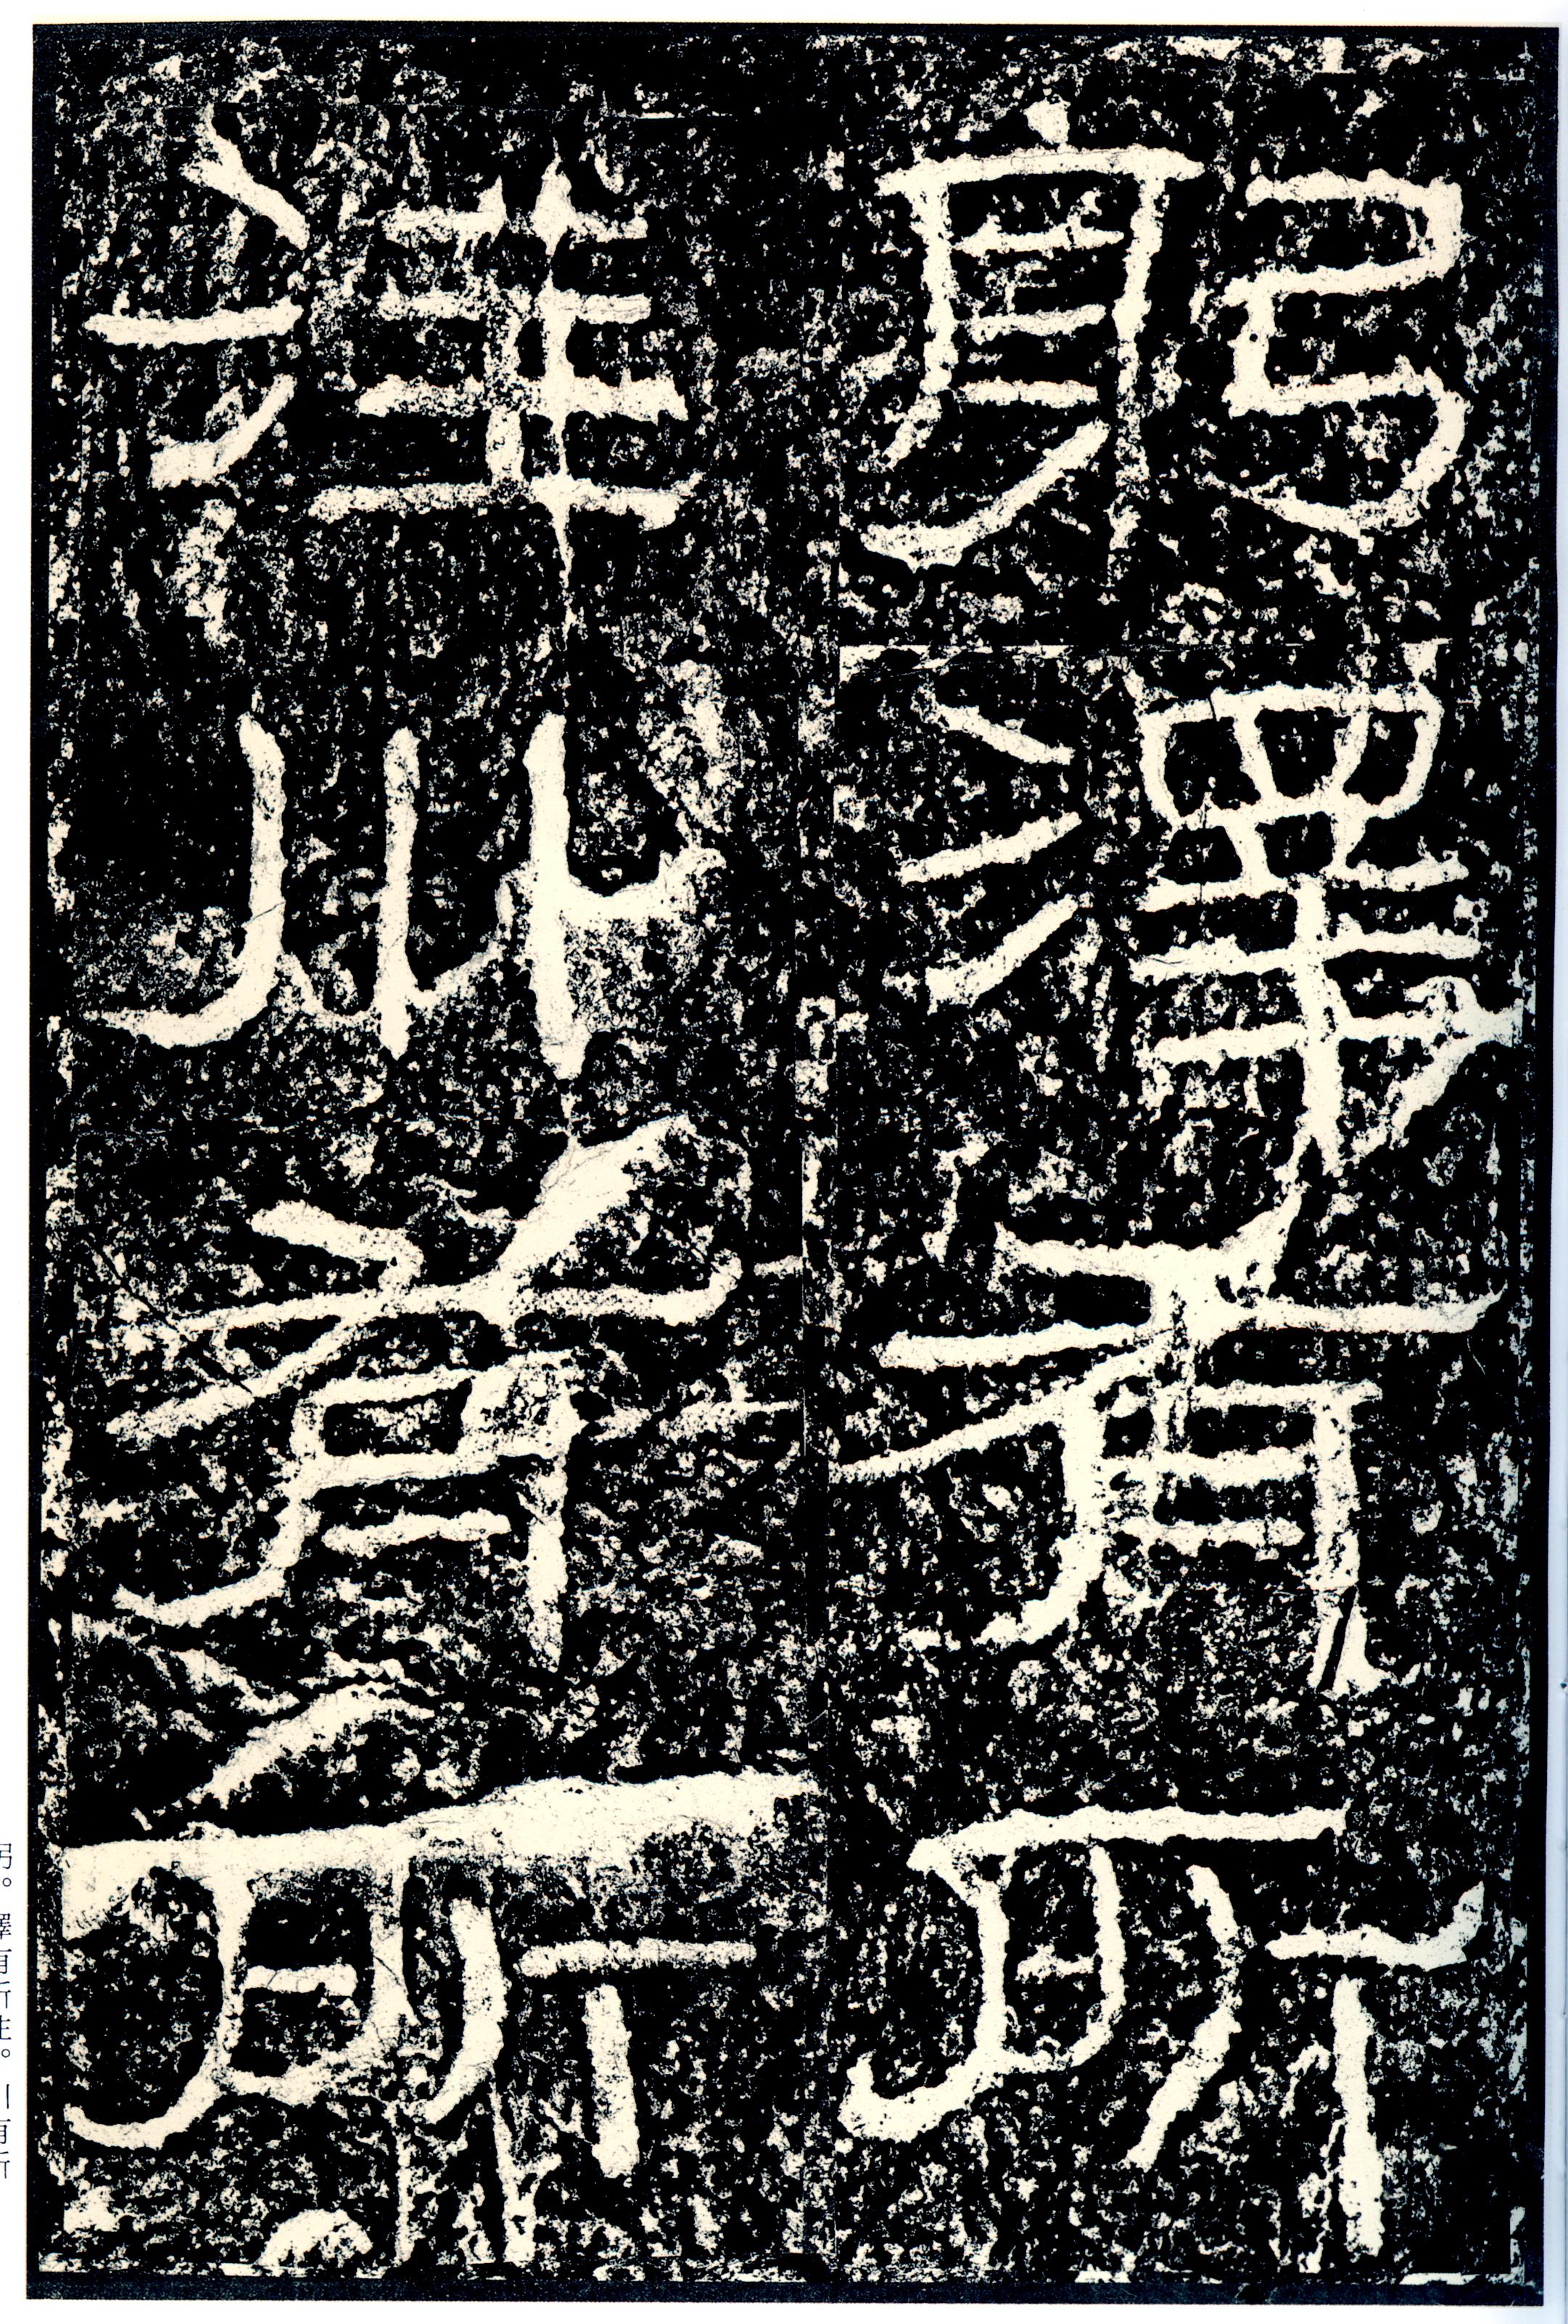 躬澤有所
注川有所
躬。澤有所注。川有所